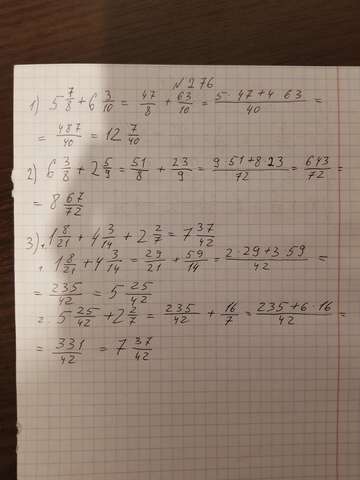 N 276
1) 5 7/8 + 6 3/10 = 47/8 + 63/10 = (5 · 47 + 4 · 63)/40 =
= 487/40 = 12 7/40
2) 6 3/8 + 2 5/9 = 51/8 + 23/9 = (9 · 51 + 8 · 23)/72 = 643/72 =
= 8 67/72
3) 1 8/21 + 4 3/14 + 2 2/7 = 7 37/42
1. 1 8/21 + 4 3/14 = 29/21 + 59/14 = (2 · 29 + 3 · 59)/42 =
= 235/42 = 5 25/42
2. 5 25/42 + 2 2/7 = 235/42 + 16/7 = (235 + 6 · 16)/42 =
= 331/42 = 7 37/42